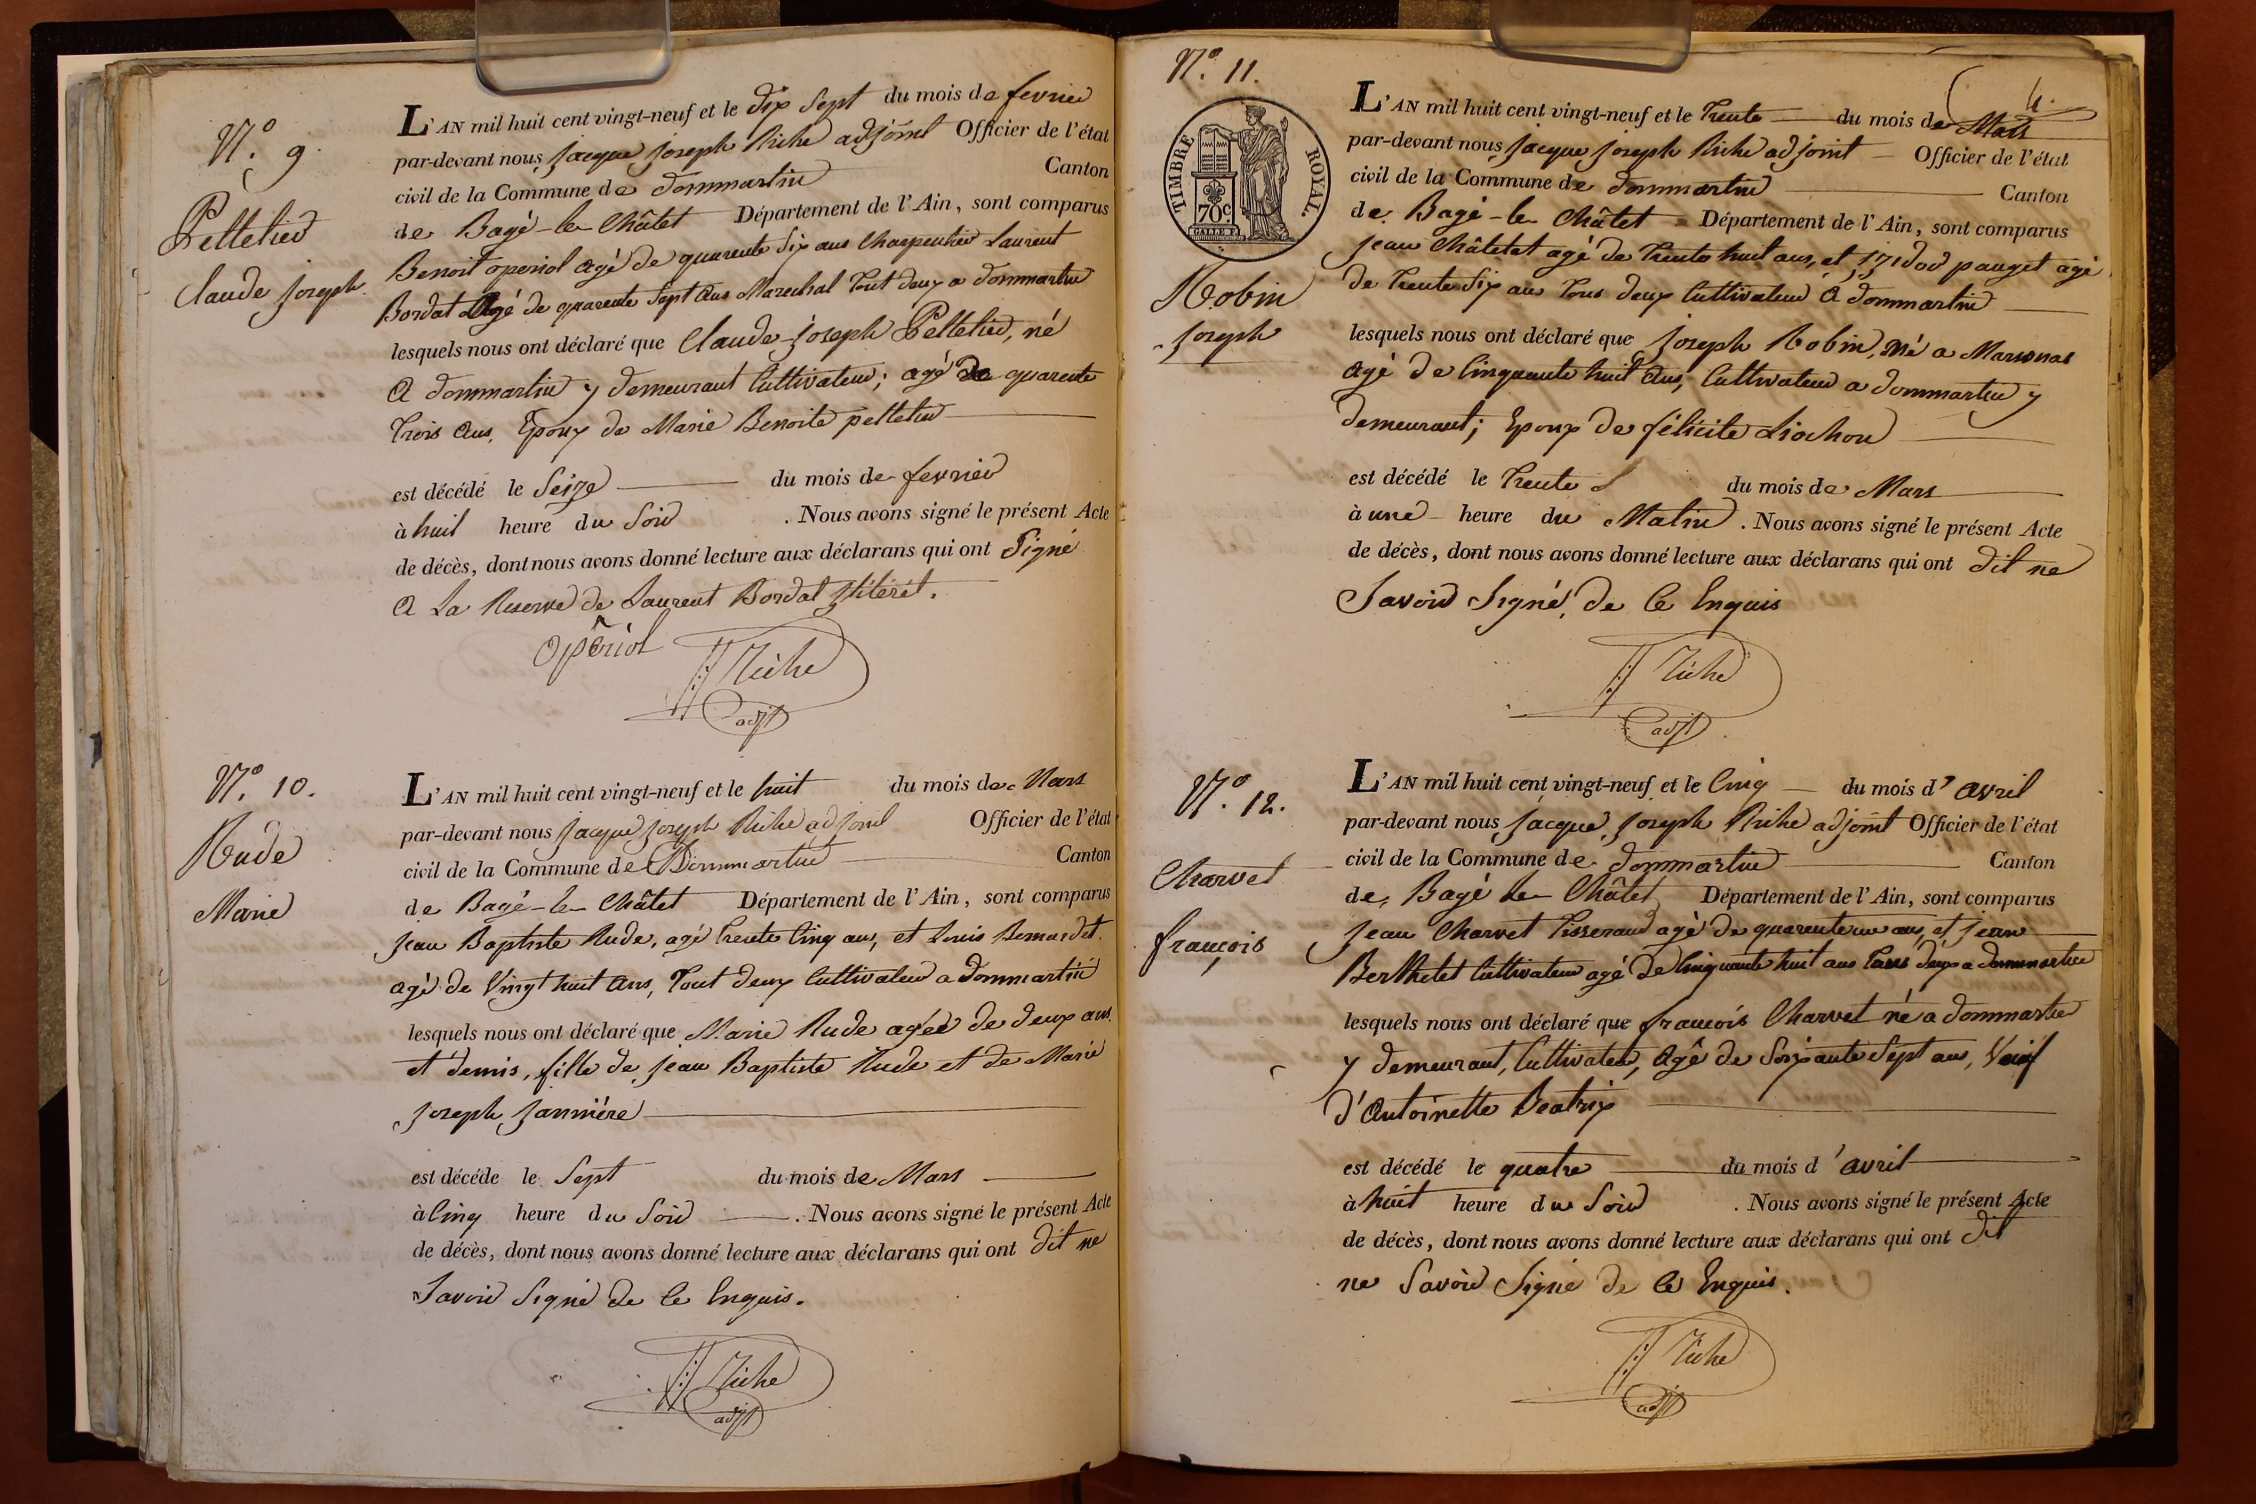 N.º 9
Pelletier
Claude joseph
L'AN mil huit cent vingt-neuf et le dix Sept du mois de fevrier
par-devant nous jacque joseph Riche adjoint Officier de l'état
civil de la Commune de dommartin Canton
de Bagé-le-Châtet Département de l'Ain, sont comparus
Benoit operiol agé de quarente Six ans Charpentier Laurent
Bordat Agé de quarente Sept ans Marechal tout deux a dommartin
lesquels nous ont déclaré que Claude joseph Pelletier, né
a dommartin y demeurant Cultivateur; agé de quarente
trois ans, Epoux de Marie Benoite pelletier
est décédé le Seize du mois de fevrier
à huit heure du Soir . Nous avons signé le présent Acte
de décès, dont nous avons donné lecture aux déclarans qui ont Signé
a La Reserve de Laurent Bordat
opériol
Riche
adjt
N.º 10.
Rude
Marie
L'AN mil huit cent vingt-neuf et le huit du mois de Mars
par-devant nous jacque joseph Riche adjoint Officier de l'état
civil de la Commune de Dommartin Canton
de Bagé-le-Châtet Département de l'Ain, sont comparus
jean Baptiste Rude, agé trente Cinq ans, et Louis Bernardet.
agé de Vingt huit ans, tout deux Cultivateur a dommartin
lesquels nous ont déclaré que Marie Rude agéé de deux ans
et demis, fille de jean Baptiste Rude et de Marie
joseph janniére
est décéde le Sept du mois de Mars
à Cinq heure du Soir . Nous avons signé le présent Acte
de décès, dont nous avons donné lecture aux déclarans qui ont dit ne
Savoir Signé de Ce Enquis.
Riche
adjt
N.º 11.
4.
TIMBRE ROYAL.
70c.
Robin
joseph
L'AN mil huit cent vingt-neuf et le trente du mois de Mars
par-devant nous jacque joseph Riche adjoint Officier de l'état
civil de la Commune de dommartin Canton
de Bagé-le Châtet Département de l'Ain, sont comparus
jean Châtetet agé de trente huit ans, et izidor pauget agé
de trente Six ans tous deux Cultivateur a dommartin
lesquels nous ont déclaré que joseph Robin, né a Marsonas
agé de Cinquante huit ans, Cultivateur a dommartin y
demeurant; Epoux de félicite Liochon
est décédé le trente du mois de Mars
à une heure du Matin . Nous avons signé le présent Acte
de décès, dont nous avons donné lecture aux déclarans qui ont dit ne
Savoir Signé, de Ce Enquis
Riche
adjt
N.º 12.
Charvet
françois
L'AN mil huit cent vingt-neuf et le Cinq du mois d'avril
par-devant nous jacque joseph Riche adjoint Officier de l'état
civil de la Commune de dommartin Canton
de Bagé le Châtet Département de l'Ain, sont comparus
jean Charvet tisserand agé de quarente un ans, et jean
Berthelet Cultivateur agé de Cinquante huit ans tous deux a dommartin
lesquels nous ont déclaré que françois Charvet né a dommartin
y demeurant, Cultivateur, agé de Soixante Sept ans, Veuf
d'antoinette Beatrix
est décédé le quatre du mois d'avril
à huit heure du Soir . Nous avons signé le présent Acte
de décès, dont nous avons donné lecture aux déclarans qui ont dit
ne Savoir Signé de Ce Enquis.
Riche
adjt